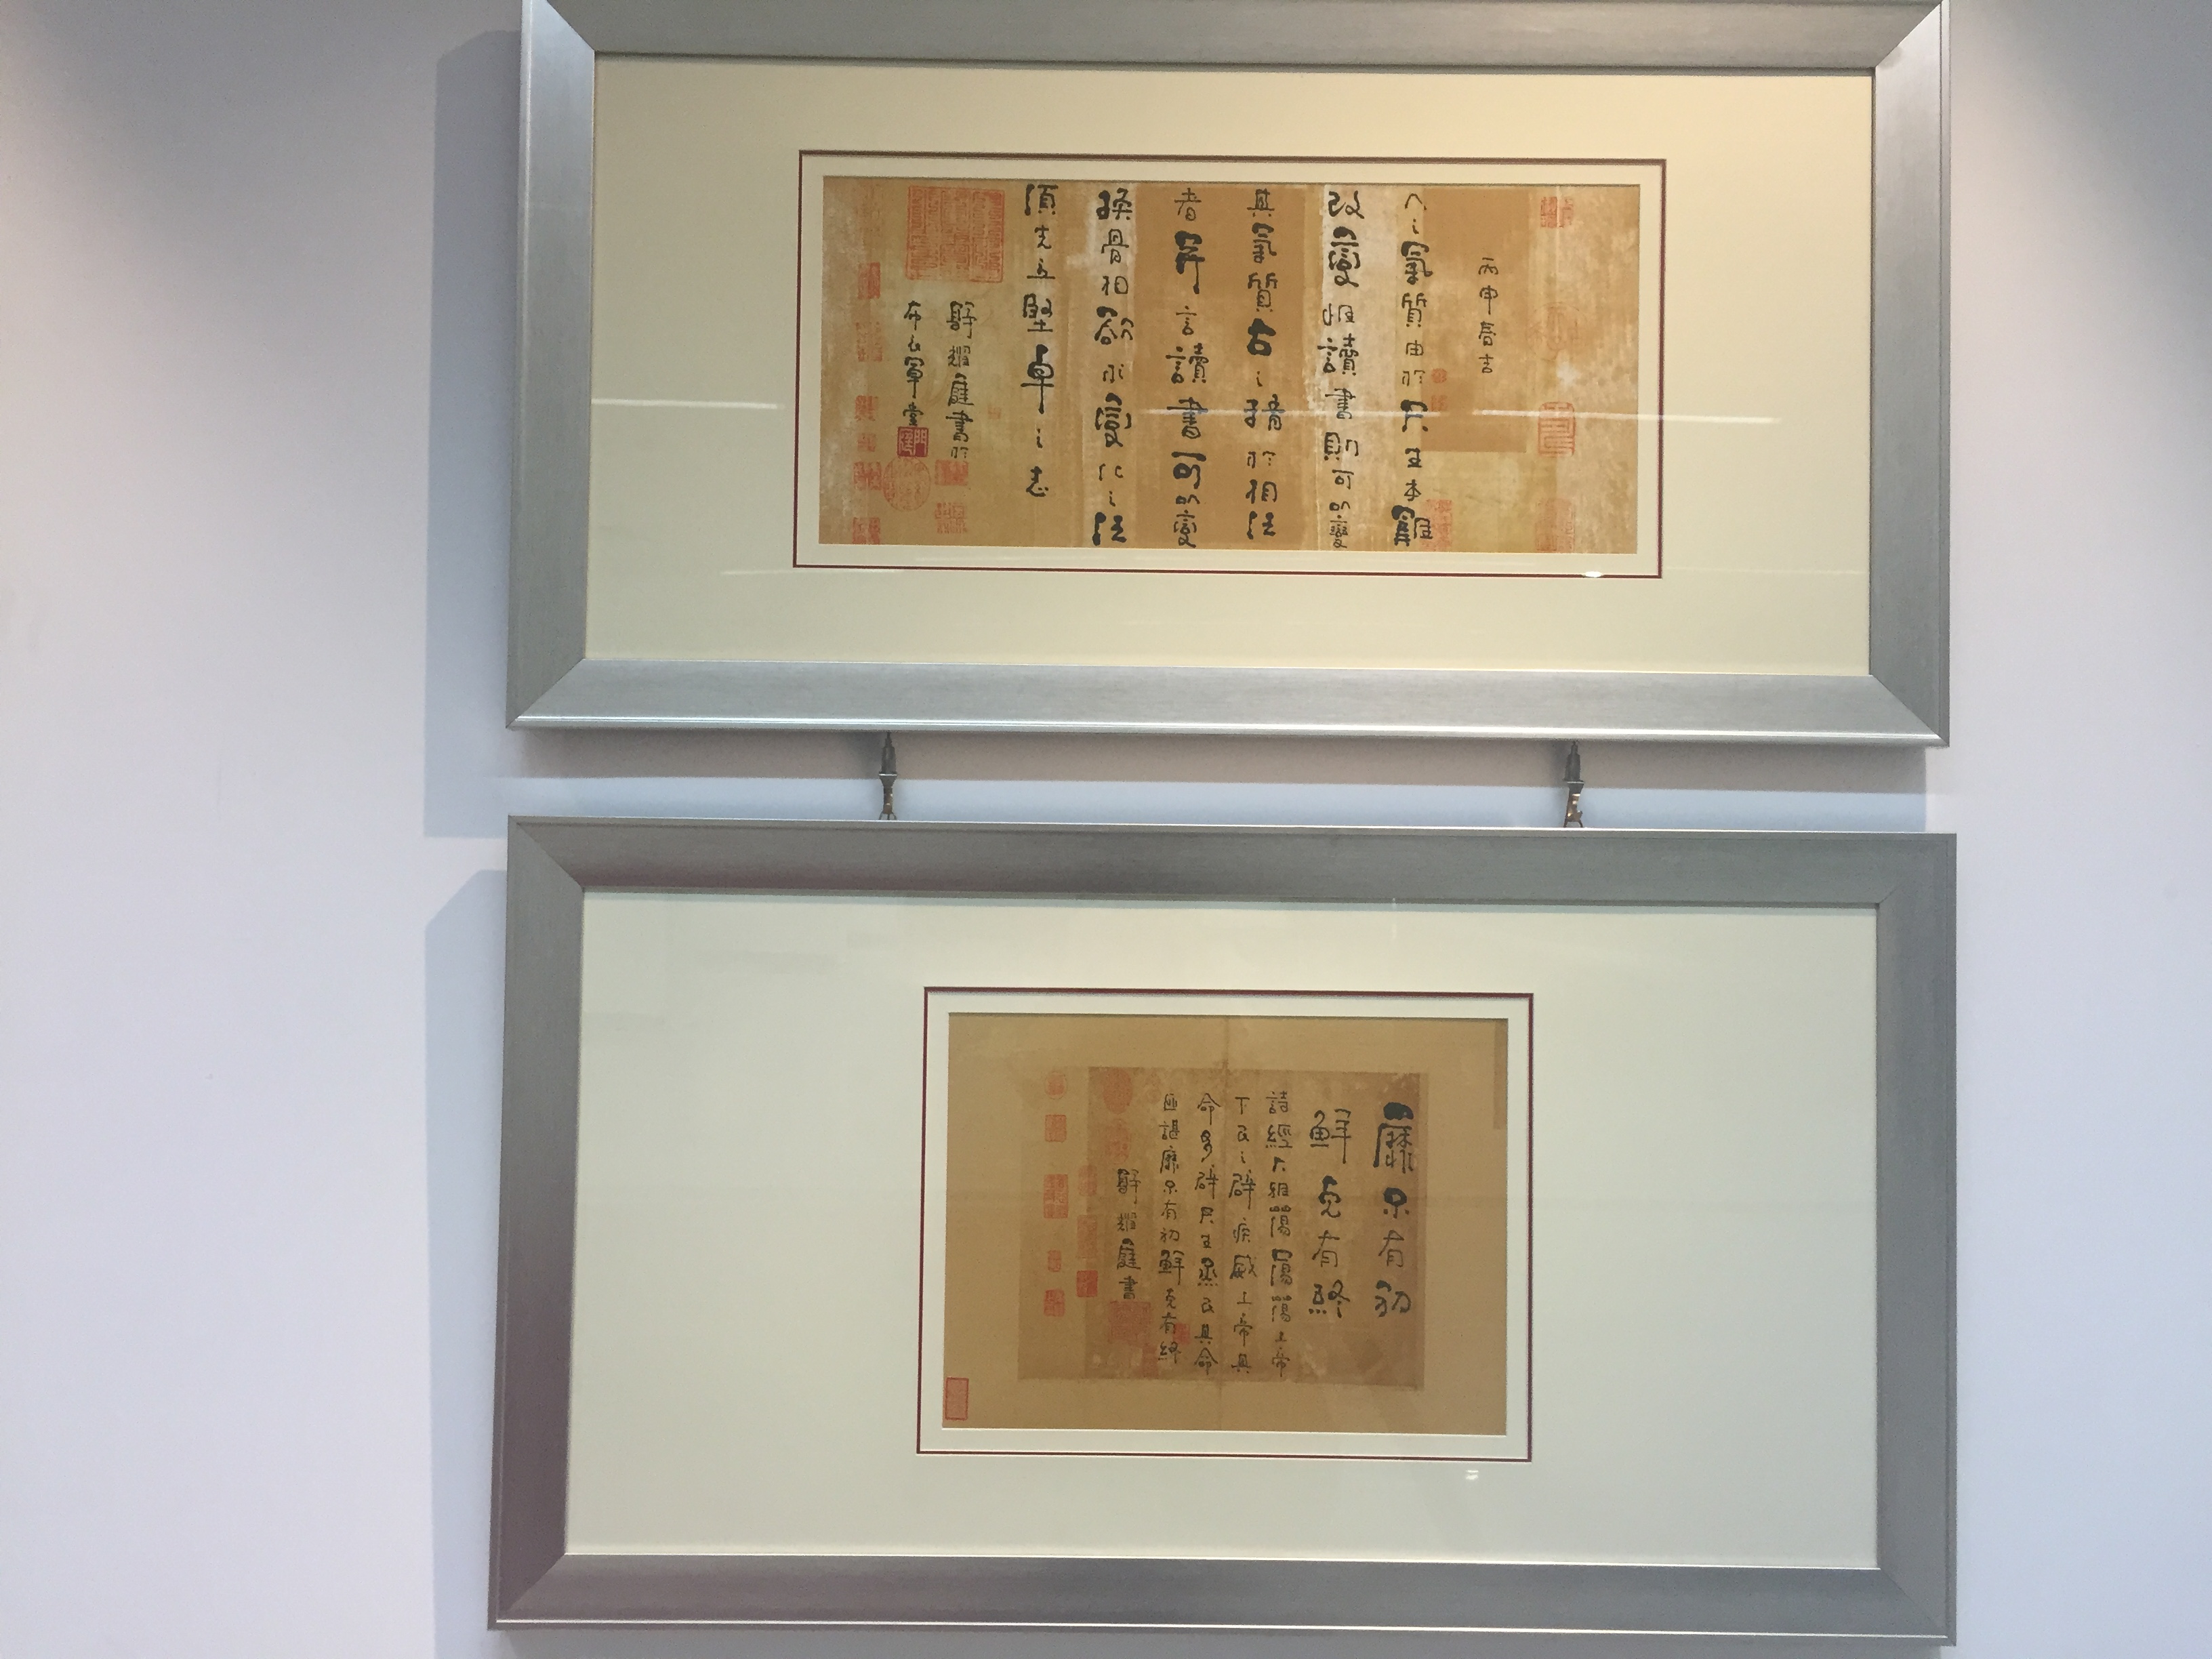 丙申春吉
人之氣質由於天生本難
改變惟讀書則可以變
其氣質古之精於相法
者并言讀書可以變
換骨相欲求變化之法
須先立堅卓之志
舒耀庭書於
布衣草堂
靡不有初
鮮克有終
詩經大雅蕩蕩蕩上帝
下民之辟疾威上帝其
命多辟天生烝民其命
匪諶靡不有初鮮克有終
舒耀庭書